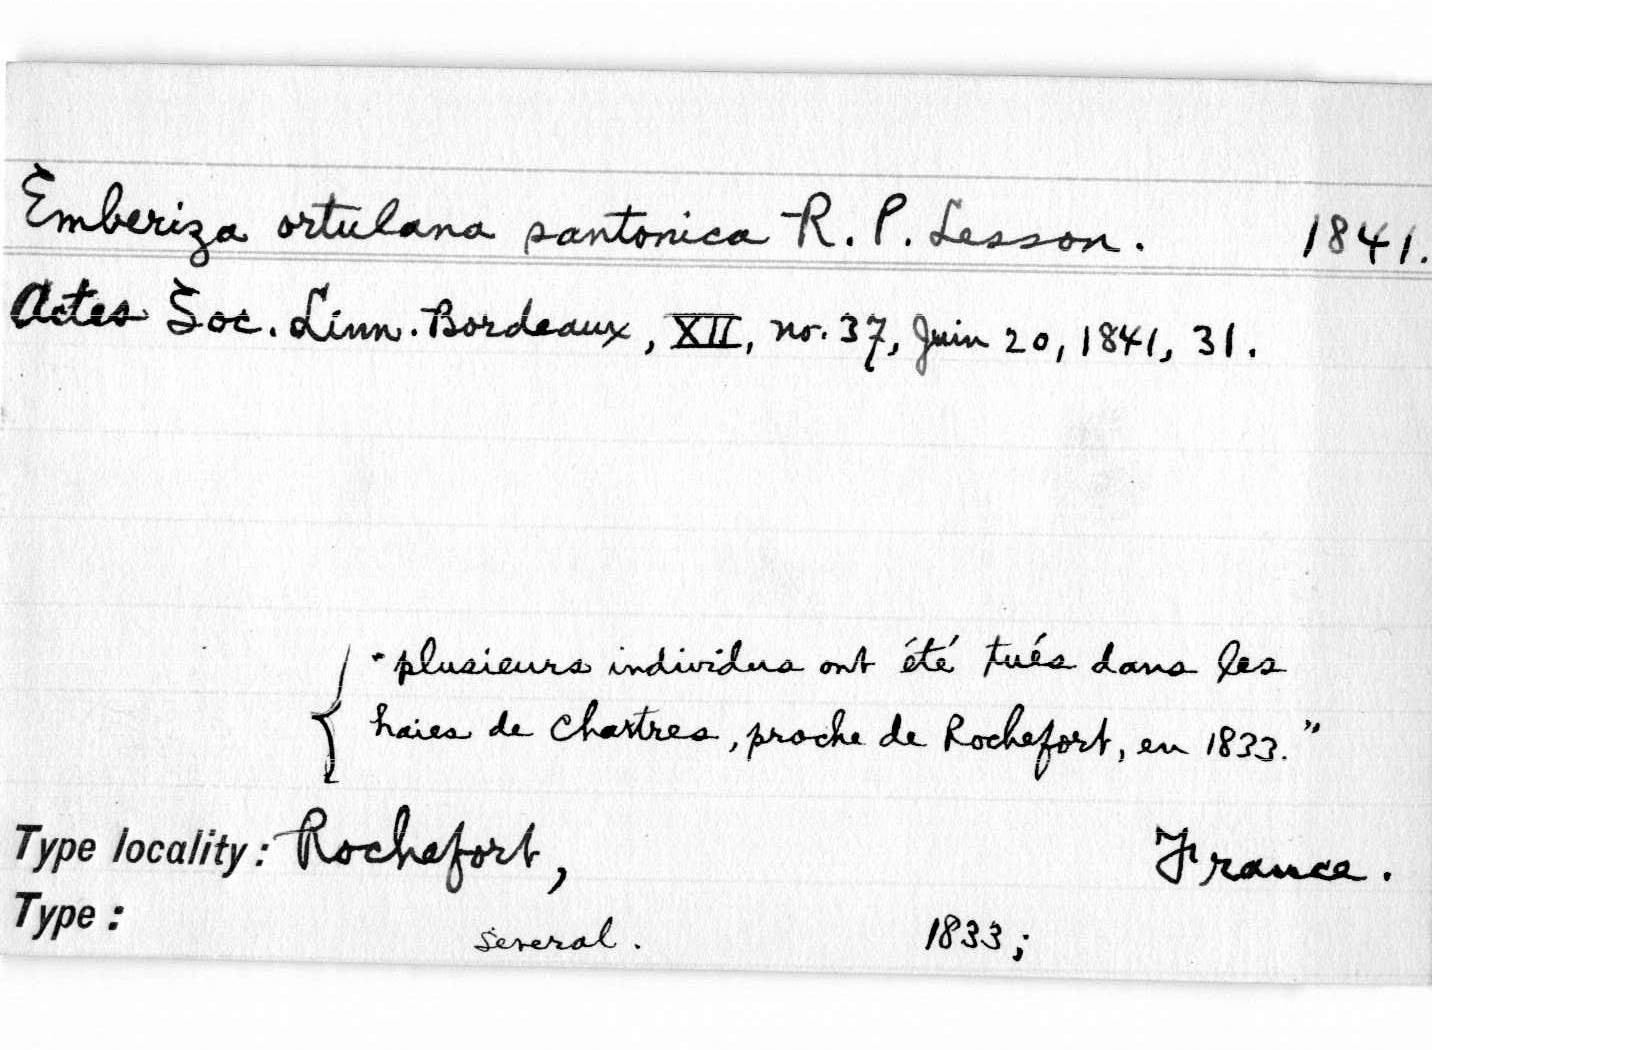 Emberiza ortulana santonica R. P. Lesson. 1841.
Actes Soc. Linn. Bordeaux, XII, no. 37, Juin 20, 1841, 31.
"plusieurs individus ont été tués dans les
haies de Chartres, proche de Rochefort, en 1833."
Type locality: Rochefort, France.
Type:
several. 1833;